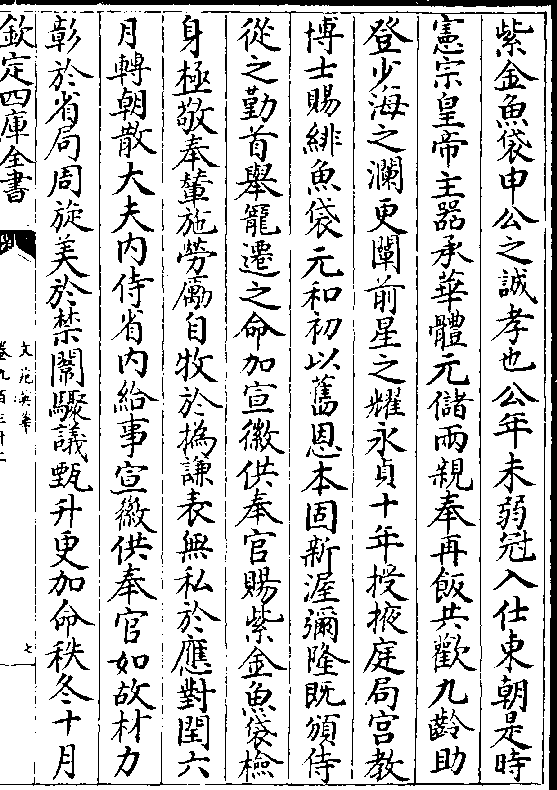 紫金魚袋申公之誠孝也公年未弱冠入仕東朝是時
憲宗皇帝主器承華體元儲兩親奉再飯共歡九齡助
登少海之瀾更闡前星之耀永貞十年授掖庭局宮教
博士賜緋魚袋元和初以舊恩本固新渥彌隆既頒侍
從之勤首舉寵遷之命加宣徽供奉官賜紫金魚袋檢
身極敬奉輦施勞勵自牧於撝謙表無私於應對閏六
月轉朝散大夫內侍省內給事宣徽供奉官如故材力
彰於省局周旋美於禁闈驟議甄升更加命秩冬十月
欽定四庫全書
文苑英華
卷九百三十二
七